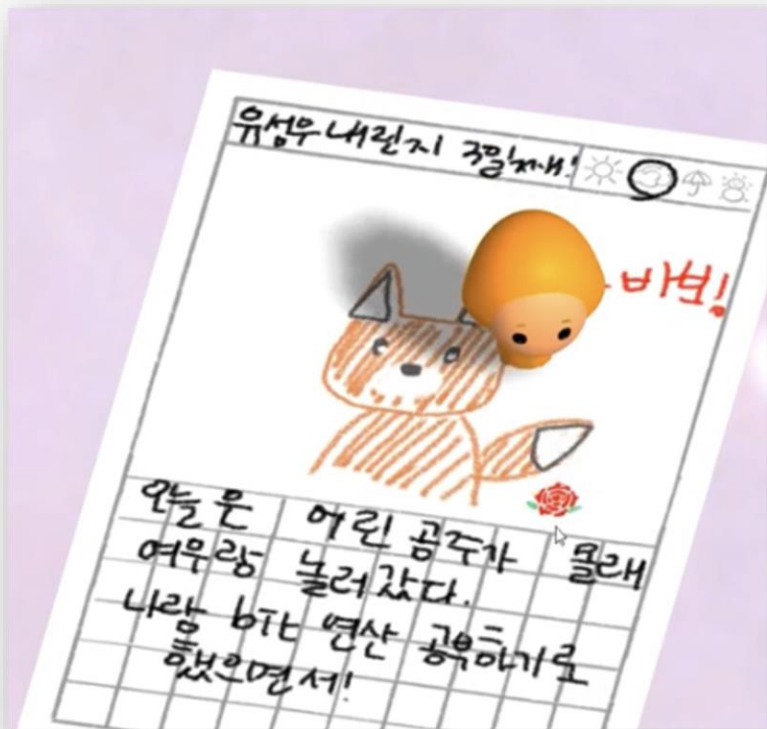 유성우 내린지 3일째!
바보!
오늘은 어린 공주가 몰래
여우랑 놀러갔다.
나랑 bit 연산 공부하기로
했으면서!